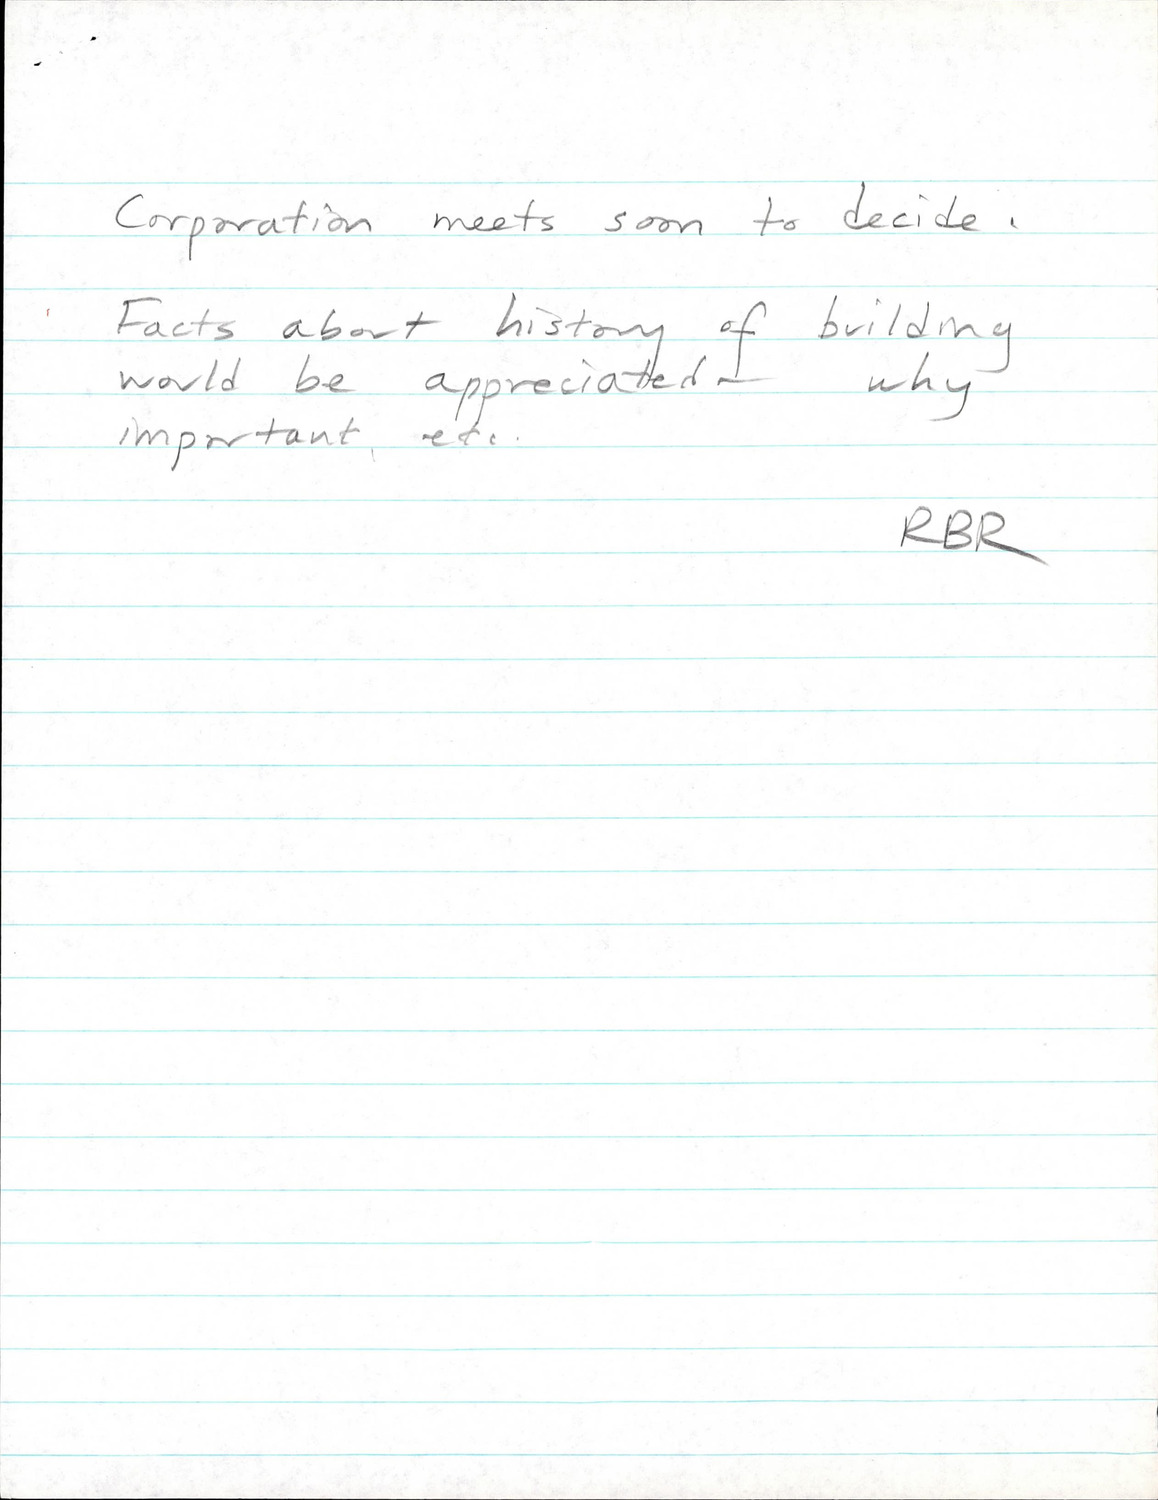 Corporation meets soon to decide.
Facts about history of building
would be appreciated - why
important, etc.
RBR